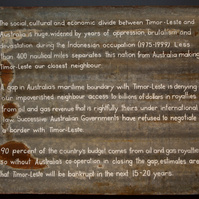 The social, cultural and economic divide between Timor-Leste and
Australia is huge, widened by years of oppression, brutalism and
devastation during the Indonesian occupation (1975-1999). Less
than 600 nautical miles separates this nation from Australia making
Timor-Leste our closest neighbour.
A gap in Australia's maritime boundary with Timor-Leste is denying
our impoverished neighbour access to billions of dollars in royalties
from oil and gas revenue that is rightfully theirs under international
law. Successive Australian Governments have refused to negotiate
a border with Timor-Leste.
90 percent of the country's budget comes from oil and gas royalties
so without Australia's co-operation in closing the gap, estimates are
that Timor-Leste will be bankrupt in the next 15-20 years.